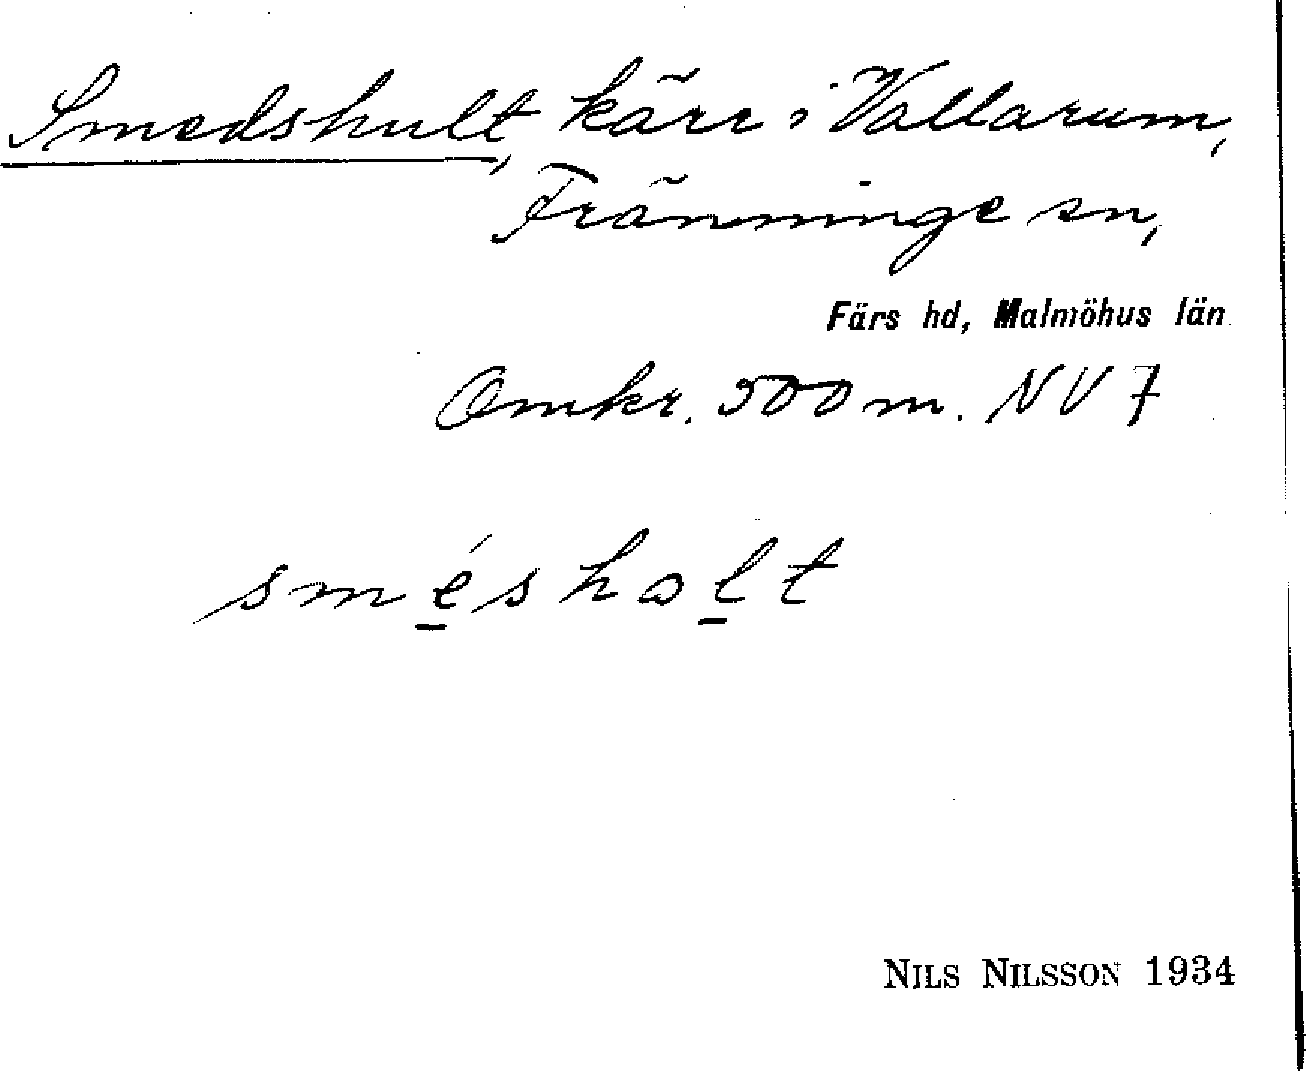 Smedshult, kärr i Vallarum,
Fränninge sn,
Färs hd, Malmöhus län
Omkr. 500 m. NV 7
smésholt
NILS NILSSON 1934